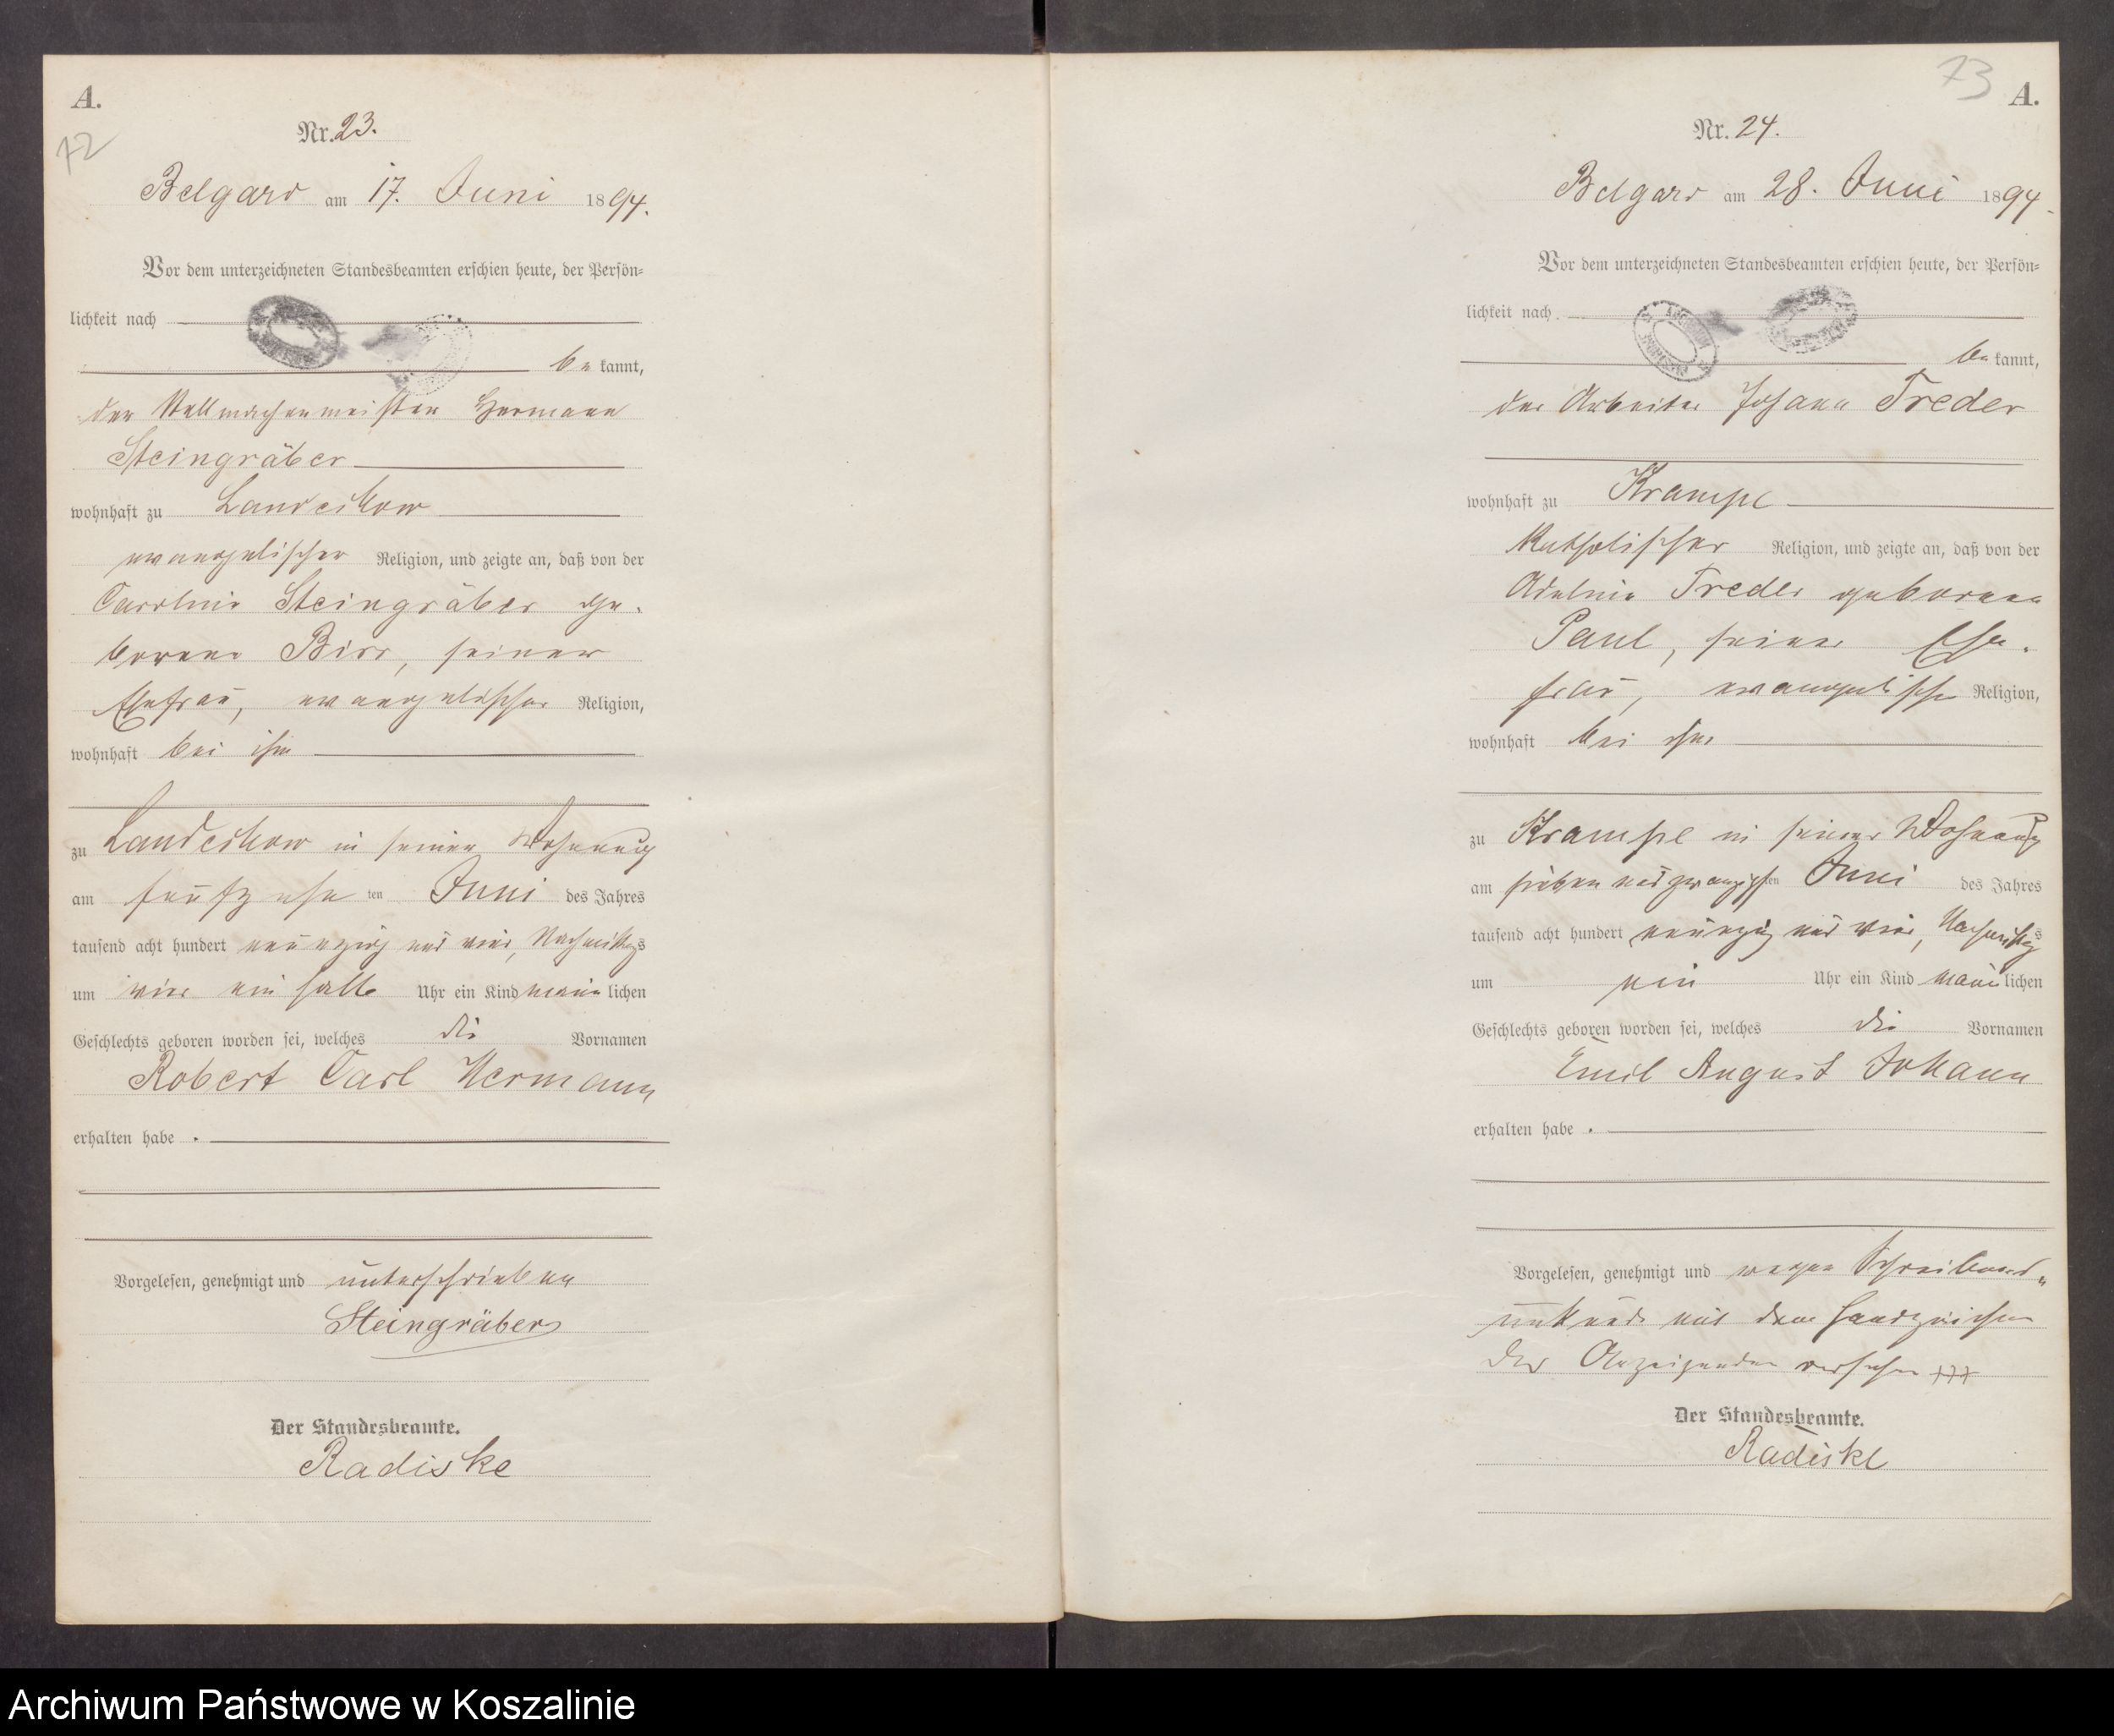 A.
72
Nr. 23.
Belgard am 17. Juni 1894.
Vor dem unterzeichneten Standesbeamten erschien heute, der Persön-
lichkeit nach
be kannt,
der Stellmachermeister Hermann
Steingräber
wohnhaft zu Landechow
evangelischer Religion, und zeigte an, daß von der
Caroline Steingräber ge-
borene Birr, seiner
Ehefrau, evangelischer Religion,
wohnhaft bei ihm
zu Landechow in seiner Wohnung
am fünfzehn ten Juni des Jahres
tausend acht hundert neunzig und vier, Nachmittags
um vier ein halb Uhr ein Kind männ lichen
Geschlechts geboren worden sei, welches die Vornamen
Robert Carl Hermann
erhalten habe.
Vorgelesen, genehmigt und unterschrieben
Steingräber
Der Standesbeamte.
Radiske
73
A.
Nr. 24.
Belgard am 28. Juni 1894.
Vor dem unterzeichneten Standesbeamten erschien heute, der Persön-
lichkeit nach
be kannt,
der Arbeiter Johann Treder
wohnhaft zu Krampe
katholischer Religion, und zeigte an, daß von der
Treder geborene
Paul, seiner Ehe-
frau, evangelischer Religion,
wohnhaft bei ihm
zu Krampe in seiner Wohnung
am sieben und zwanzigsten Juni des Jahres
tausend acht hundert neunzig und vier, Nachmittags
um ein Uhr ein Kind männ lichen
Geschlechts geboren worden sei, welches die Vornamen
Emil August Johann
erhalten habe.
Vorgelesen, genehmigt und wegen Schreibens-
unkunde mit dem Handzeichen
des Anzeigenden versehen +++
Der Standesbeamte.
Radiske
Archiwum Państwowe w Koszalinie